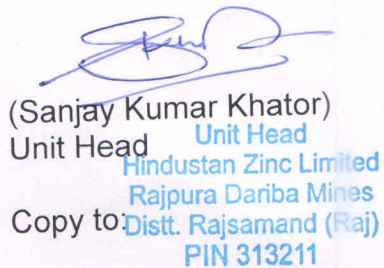 (Sanjay Kumar Khator)
Unit Head
Unit Head
Hindustan Zinc Limited
Rajpura Dariba Mines
Copy to:
Distt. Rajsamand (Raj)
PIN 313211